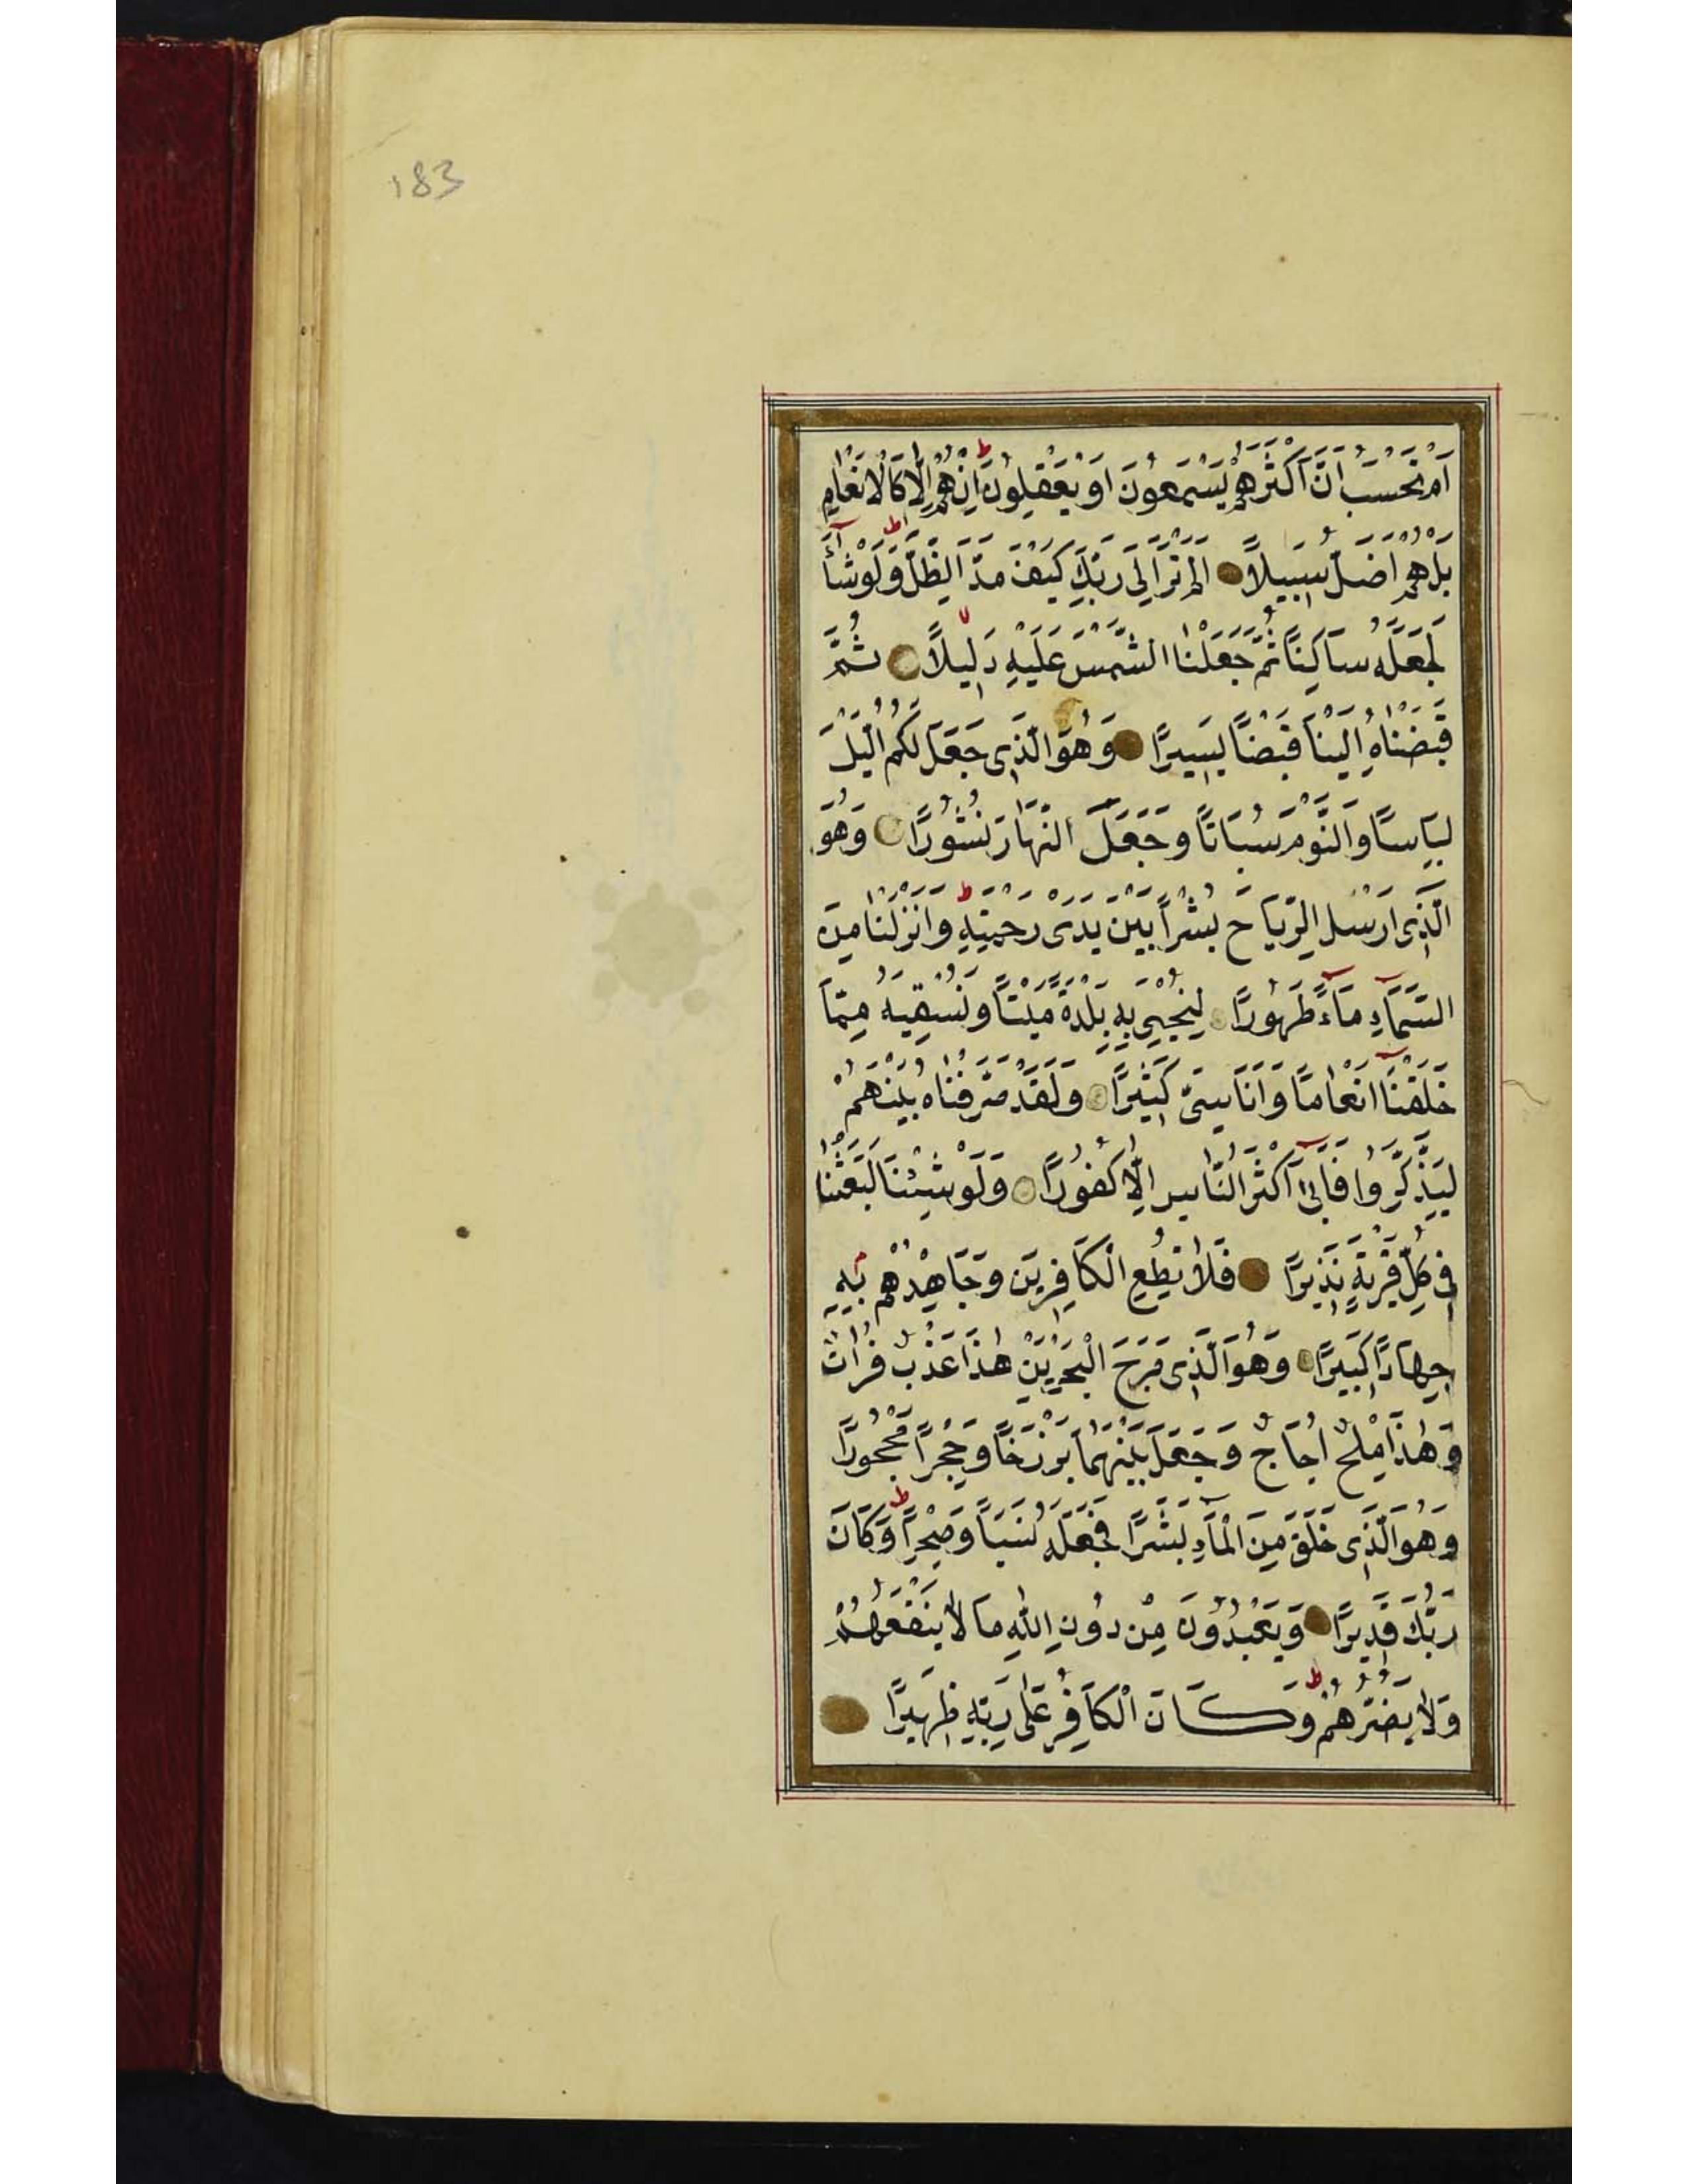 183
اَمْ تَحْسَبُ اَنَّ اَكْثَرَهُمْ يَسْمَعُونَ اَوْ يَعْقِلُونَ ط اِنْ هُمْ اِلَّا كَالْاَنْعَامِ
بَلْ هُمْ اَضَلُّ سَبِيلًا اَلَمْ تَرَ اِلٰى رَبِّكَ كَيْفَ مَدَّ الظِّلَّ ط وَلَوْ شَآءَ
لَجَعَلَهُ سَاكِنًا ثُمَّ جَعَلْنَا الشَّمْسَ عَلَيْهِ دَلِيلًا لا ثُمَّ
قَبَضْنَاهُ اِلَيْنَا قَبْضًا يَسِيرًا وَهُوَ الَّذِى جَعَلَ لَكُمُ الَّيْلَ
لِبَاسًا وَالنَّوْمَ سُبَاتًا وَجَعَلَ النَّهَارَ نُشُورًا وَهُوَ
الَّذِى اَرْسَلَ الرِّيَاحَ بُشْرًا بَيْنَ يَدَىْ رَحْمَتِهِ ط وَاَنْزَلْنَا مِنَ
السَّمَآءِ مَآءً طَهُورًا لِنُحْيِىَ بِهِ بَلْدَةً مَيْتًا وَنُسْقِيَهُ مِمَّا
خَلَقْنَآ اَنْعَامًا وَاَنَاسِىَّ كَثِيرًا وَلَقَدْ صَرَّفْنَاهُ بَيْنَهُمْ
لِيَذَّكَّرُوا فَاَبٰىٓ اَكْثَرُ النَّاسِ اِلَّا كُفُورًا وَلَوْ شِئْنَا لَبَعَثْنَا
فِى كُلِّ قَرْيَةٍ نَذِيرًا فَلَا تُطِعِ الْكَافِرِينَ وَجَاهِدْهُمْ بِهِ
جِهَادًا كَبِيرًا وَهُوَ الَّذِى مَرَجَ الْبَحْرَيْنِ هٰذَا عَذْبٌ فُرَاتٌ
وَهٰذَا مِلْحٌ اُجَاجٌ وَجَعَلَ بَيْنَهُمَا بَرْزَخًا وَحِجْرًا مَحْجُورًا
وَهُوَ الَّذِى خَلَقَ مِنَ الْمَآءِ بَشَرًا فَجَعَلَهُ نَسَبًا وَصِهْرًا ط وَكَانَ
رَبُّكَ قَدِيرًا وَيَعْبُدُونَ مِنْ دُونِ اللّٰهِ مَا لَا يَنْفَعُهُمْ
وَلَا يَضُرُّهُمْ ط وَكَانَ الْكَافِرُ عَلٰى رَبِّهِ ظَهِيرًا